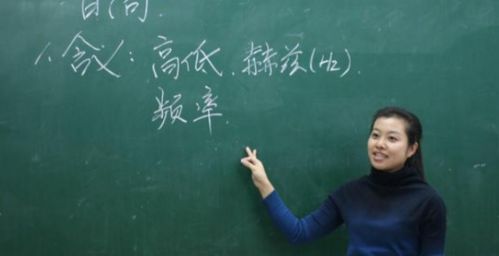 1、含义：高低.赫兹(Hz).
频率.